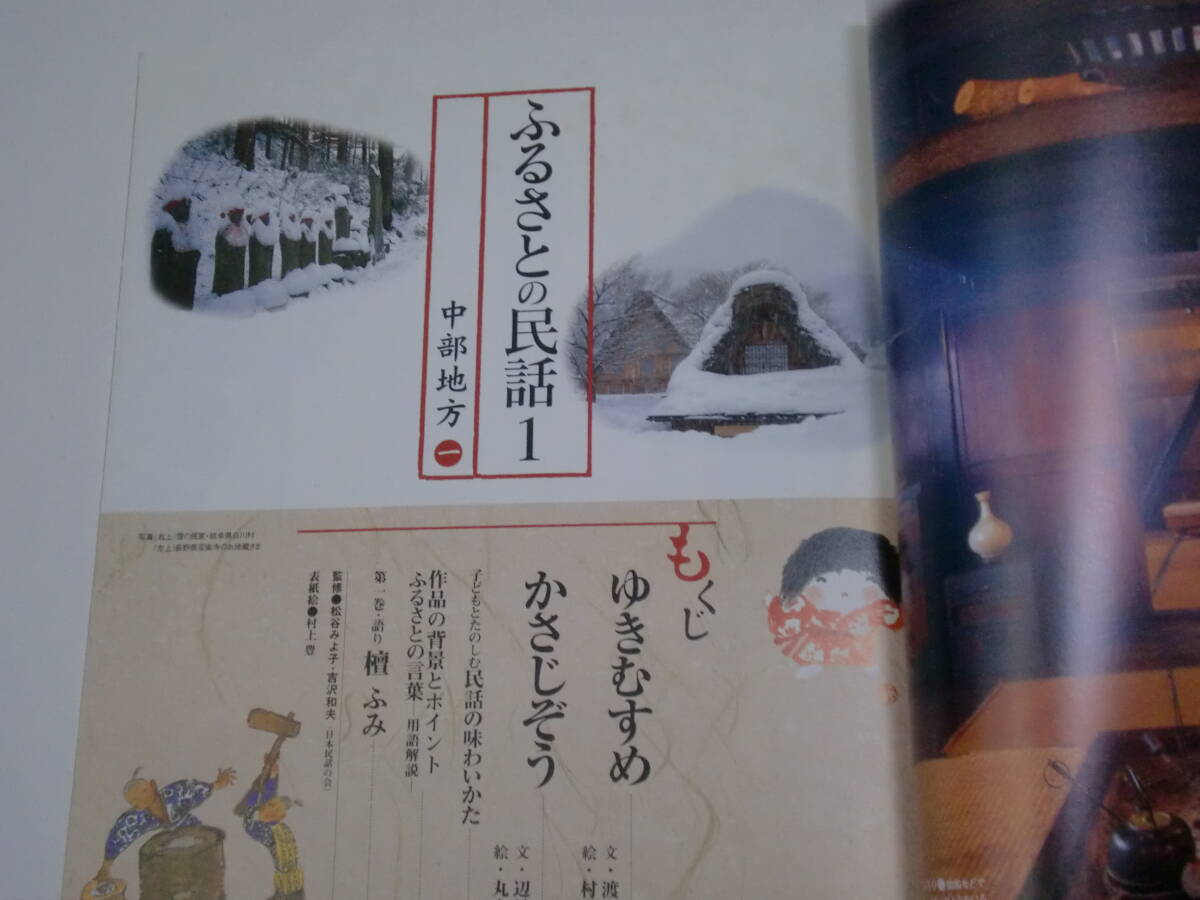 ふるさとの民話1
中部地方 一
写真〔右上〕雪の民家・岐阜県白川村
もくじ
ゆきむすめ
文・渡
絵・村
かさじぞう
文・辺
絵・丸
子どもとたのしむ民話の味わいかた
作品の背景とポイント
ふるさとの言葉―用語解説―
第一巻・語り 檀 ふみ
監修●松谷みよ子・吉沢和夫〔日本民話の会〕
表紙絵●村上 豊